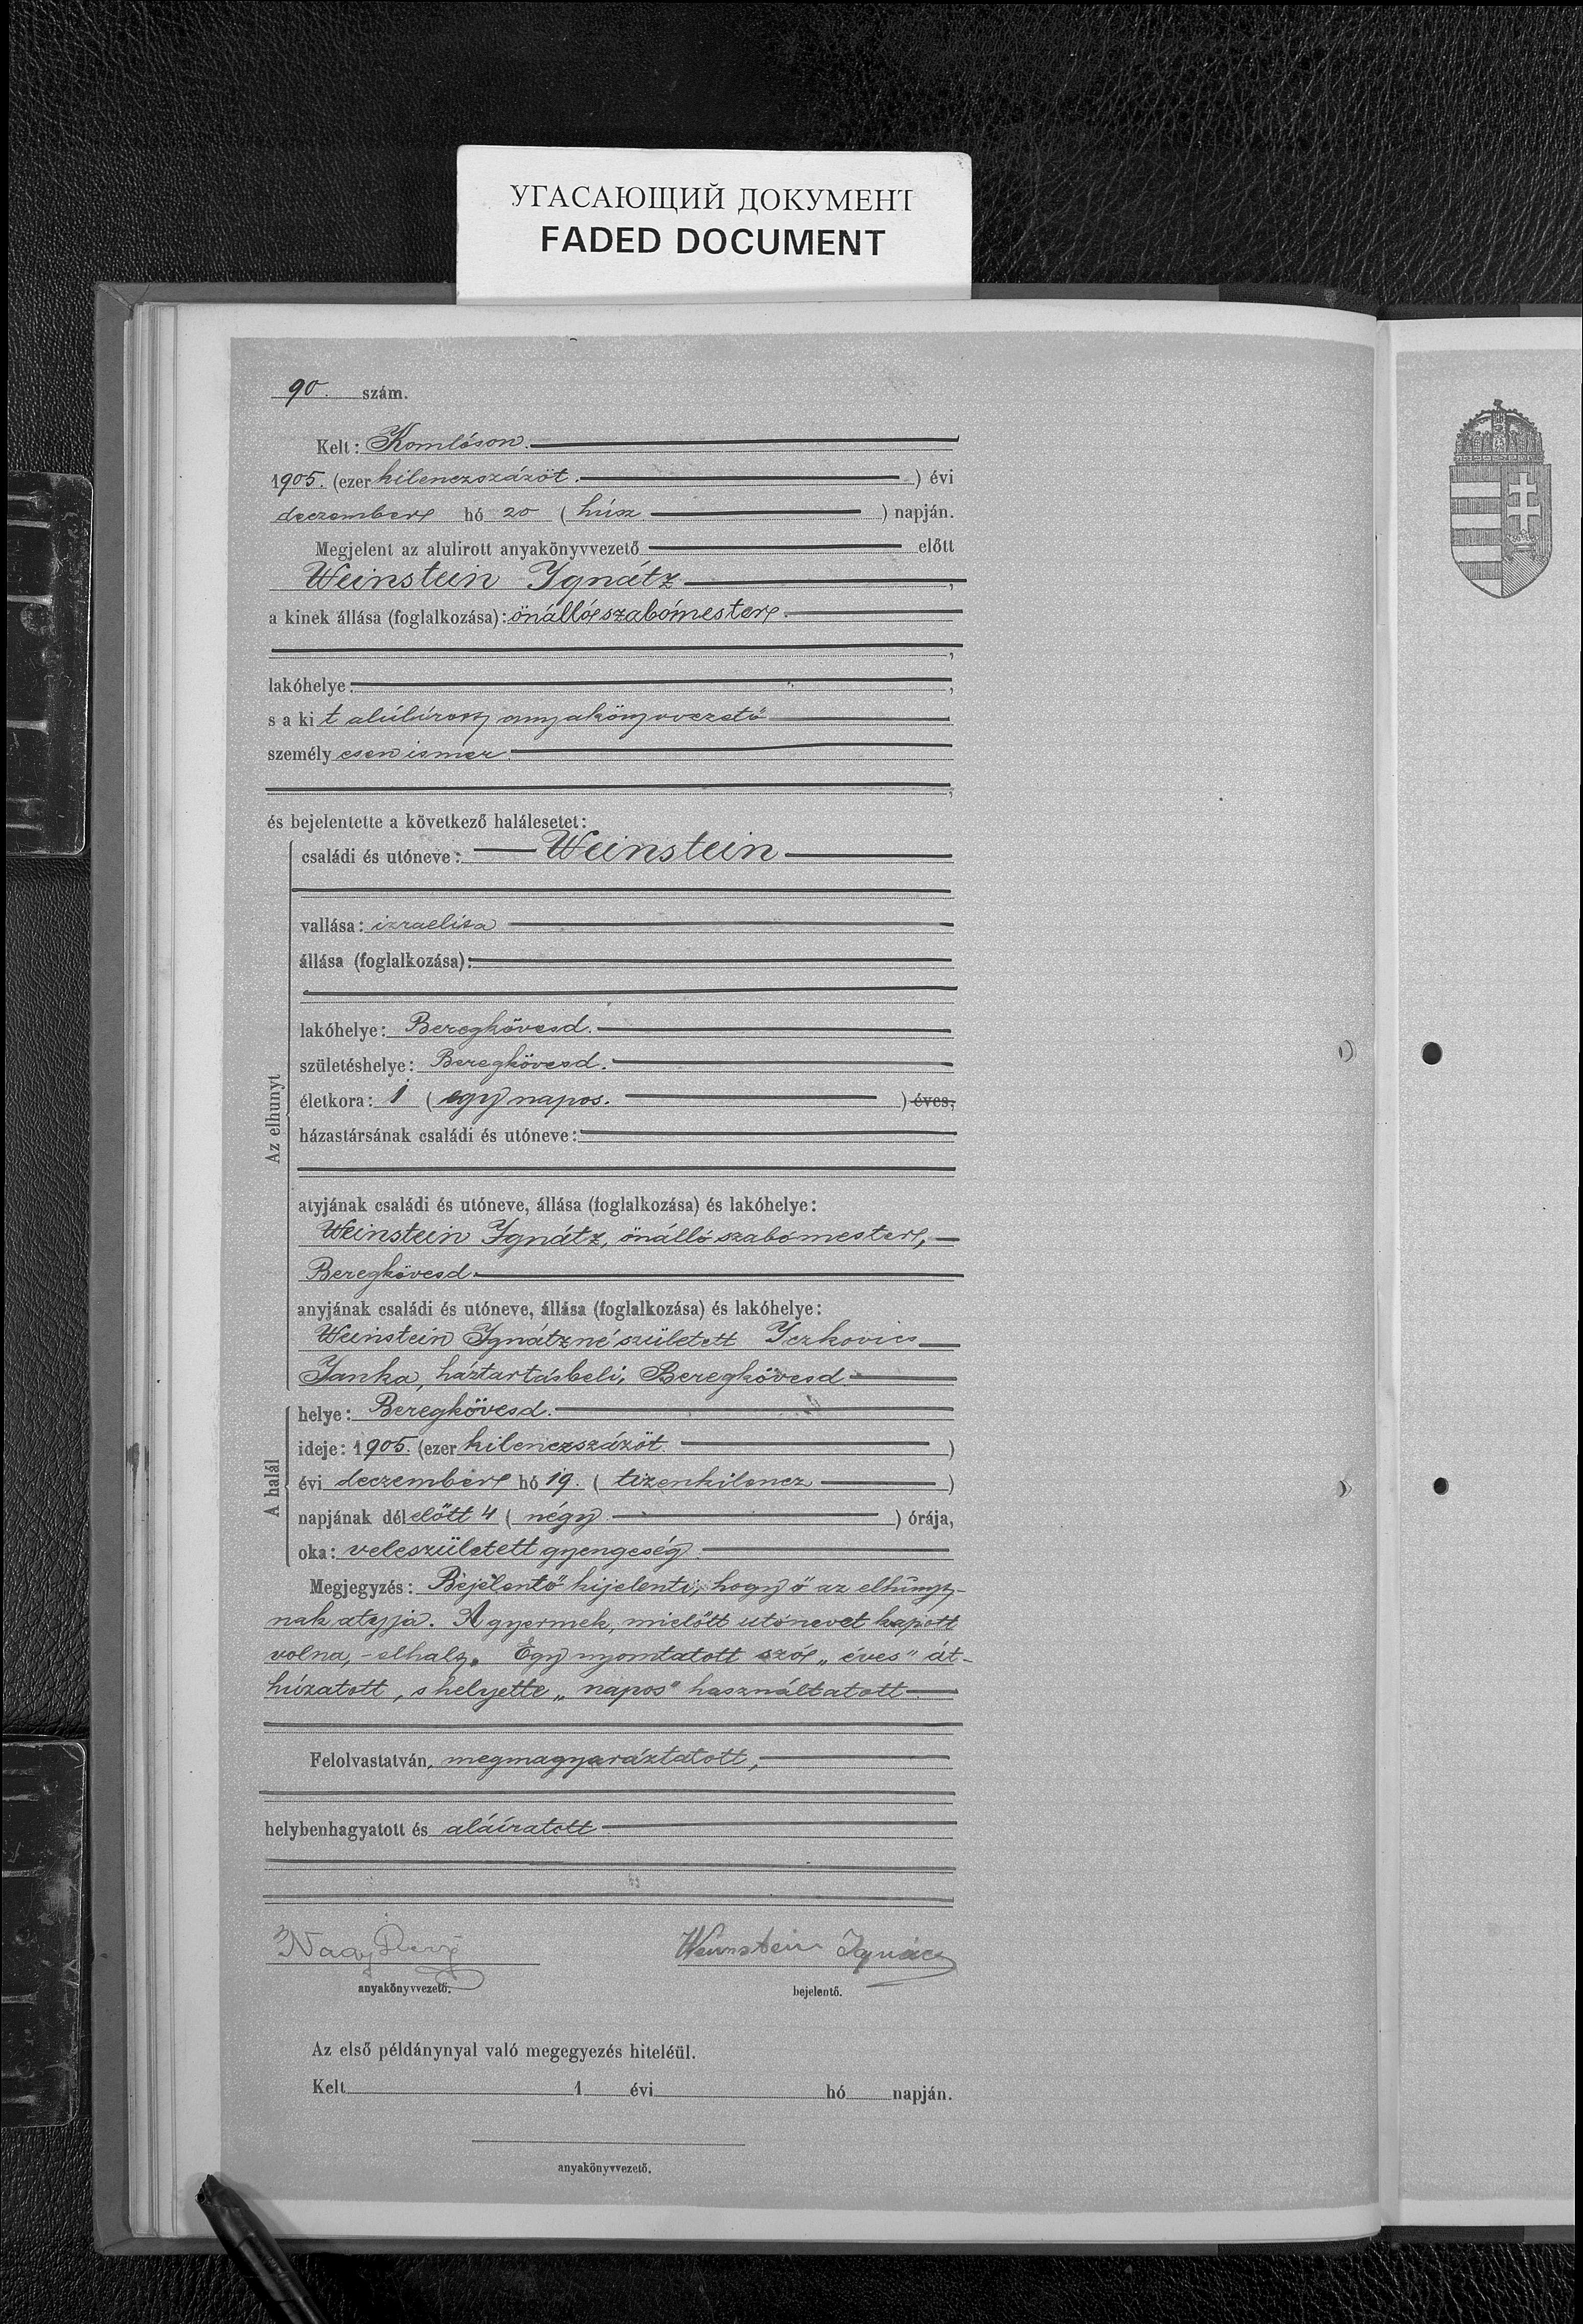 УГАСАЮЩИЙ ДОКУМЕНТ
FADED DOCUMENT
90. szám.
Kelt: Komlóson.
1905. (ezer kilenczszázöt.) évi
deczember hó 20 (húsz) napján.
Megjelent az alulirott anyakönyvvezető előtt
Weinstein Ignátz,
a kinek állása (foglalkozása): önálló szabómester.
,
lakóhelye: ,
s a kit alúlírott anyakönyvvezető
személyesen ismer.
,
és bejelentette a következő halálesetet:
Az elhunyt
családi és utóneve: Weinstein
vallása: izraelita
állása (foglalkozása):
lakóhelye: Beregkövesd.
születéshelye: Beregkövesd.
életkora: 1 (egy napos.) éves,
házastársának családi és utóneve:
atyjának családi és utóneve, állása (foglalkozása) és lakóhelye:
Weinstein Ignátz, önálló szabómester,
Beregkövesd.
anyjának családi és utóneve, állása (foglalkozása) és lakóhelye:
Weinstein Ignátzné született Iczkovics
Janka, háztartásbeli, Beregkövesd
A halál
helye: Beregkövesd.
ideje: 1905. (ezer kilenczszázöt)
évi deczember hó 19. (tizenkilencz)
napjának délelőtt 4 (négy) órája,
oka: veleszületett gyengeség.
Megjegyzés: Bejelentő kijelenti, hogy ő az elhúnyt-
nak atyja. A gyermek, mielőtt utónevet kapott
volna, - elhalt. Egy nyomtatott szó „éves" át-
húzatott, s helyette „napos" használtatott
Felolvastatván, megmagyaráztatott,
helybenhagyatott és aláíratott
Nagy
anyakönyvvezető.
Weinstein Ignácz
bejelentő.
Az első példánynyal való megegyezés hiteléül.
Kelt 1 évi hó napján.
anyakönyvvezető.